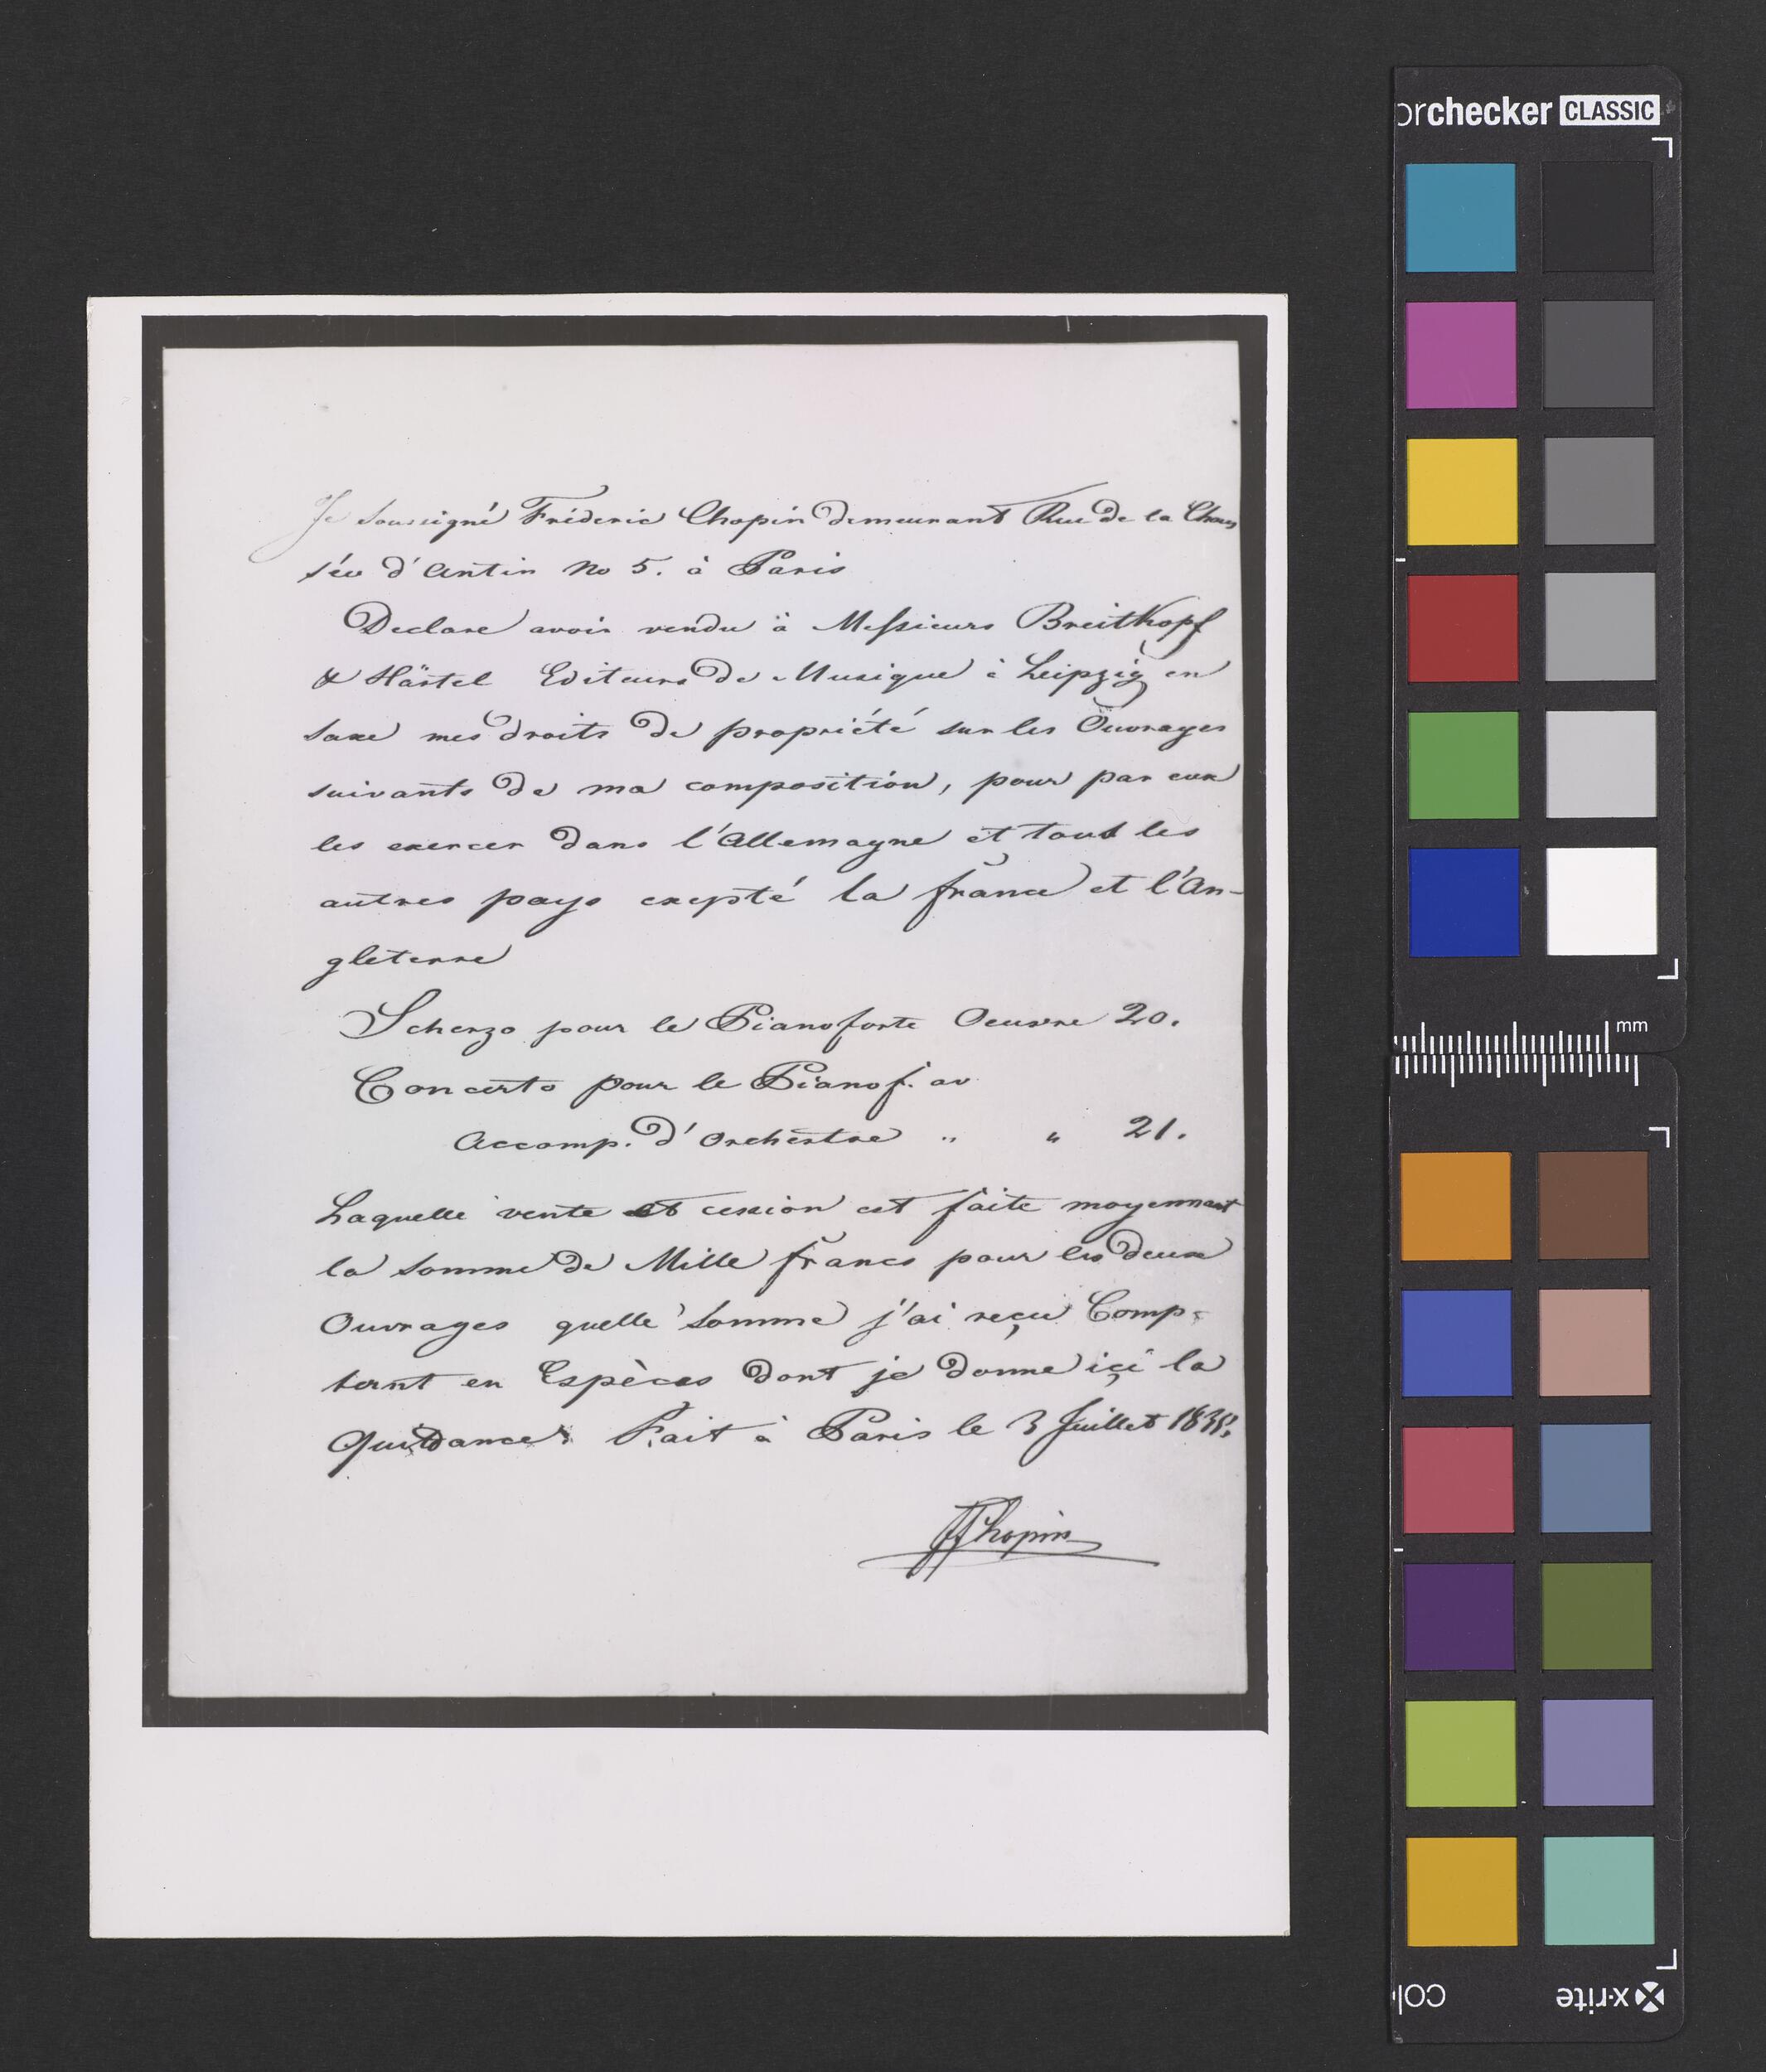 Je soussigné Fréderic Chopin demeurant Rue de la Chaus
sée d'Antin No 5. à Paris
Declare avoir vendu à Messieurs Breitkopf
& Härtel Editeurs de Musique à Leipzig en
Saxe mes droits de propriété sur les Ouvrages
suivants de ma composition, pour par eux
les exercer dans l'Allemagne et tout les
autres pays excepté la france et l'An-
gleterre
Scherzo pour le Pianoforte Oeuvre 20.
Concerto pour le Pianof. av
Accomp. d'Orchestre " " 21.
Laquelle vente et cession est faite moyennant
la somme de Mille francs pour les deux
Ouvrages quelle somme j'ai reçu Comp-
tant en Espèces dont je donne içi la
Quitance. Fait à Paris le 3 Juillet
FChopin
orchecker CLASSIC
mm
x-rite
col